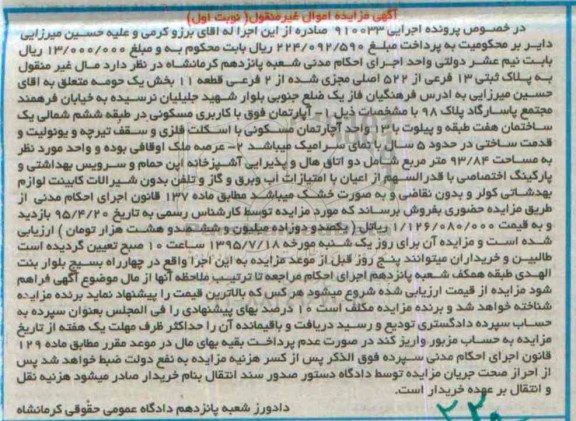 آگهی مزایده اموال غیرمنقول( نوبت اول)
در خصوص پرونده اجرایی ۹۱۰۰۳۳ صادره از این اجرا له اقای برزو کرمی و علیه حسین میرزایی
دایر بر محکومیت به پرداخت مبلغ ۲۲۴/۰۹۲/۵۹۰ ریال بابت محکوم به و مبلغ ۱۳/۰۰۰/۰۰۰ ریال
بابت نیم عشر دولتی واحد اجرای احکام مدنی شعبه پانزدهم کرمانشاه در نظر دارد مال غیر منقول
به پلاک ثبتی ۱۳ فرعی از ۵۲۲ اصلی مجزی شده از ۲ فرعی قطعه ۱۱ بخش یک حومه متعلق به اقای
حسین میرزایی به ادرس فرهنگیان فاز یک ضلع جنوبی بلوار شهید جلیلیان نرسیده به خیابان فرهمند
مجتمع پاسارگاد پلاک ۹۸ با مشخصات ذیل ۱- آپارتمان فوق با کاربری مسکونی در طبقه ششم شمالی یک
ساختمان هفت طبقه و پیلوت با ۱۲ واحد آپارتمان مسکونی با اسکلت فلزی و سقف تیرچه و یونولیت و
قدمت ساختی در حدود ۵ سال با نمای سرامیک میباشد ۲- عرصه ملک اوقافی بوده و واحد مورد نظر
به مساحت ۹۳/۸۴ متر مربع شامل دو اتاق هال و پذیرایی آشپزخانه اپن حمام و سرویس بهداشتی و
پارکینگ اختصاصی با قدرالسهم از اعیان با امتیازات اب وبرق و گاز و تلفن بدون شیرالات کابینت لوازم
بهداشتی کولر و بدون نقاضی و به صورت خشک میباشد مطابق ماده ۱۳۷ قانون اجرای احکام مدنی از
طریق مزایده حضوری بفروش برساند که مورد مزایده توسط کارشناس رسمی به تاریخ ۹۵/۴/۲۰ بازدید
و به قیمت ۱/۱۲۶/۰۸۰/۰۰۰ ریال ( یکصدو دوازده میلیون و ششصدو هشت هزار تومان ) ارزیابی
شده است و مزایده آن برای روز یک شنبه مورخه ۱۳۹۵/۷/۱۸ ساعت ۱۰ صبح تعیین گردیده است
طالبین و خریداران میتوانند پنج روز قبل از موعد مزایده به این اجرا واقع در چهارراه بسیج بلوار بنت
الهدی طبقه همکف شعبه پانزدهم اجرای احکام مراجعه تا ترتیب ملاحظه آنها از مال موضوع آگهی فراهم
شود مزایده از قیمت ارزیابی شده شروع میشود هرکس که بالاترین قیمت را پیشنهاد نماید برنده مزایده
شناخته خواهد شد و برنده مزایده مکلف است ۱۰ درصد بهای پیشنهادی را فی المجلس بعنوان سپرده به
حساب سپرده دادگستری تودیع و رسید دریافت و باقیمانده آن را حداکثر ظرف مهلت یک هفته از تاریخ
مزایده به حساب مزبور واریز کند در صورت عدم پرداخت بقیه بهای مال در موعد مقرر مطابق ماده ۱۲۹
قانون اجرای احکام مدنی سپرده فوق الذکر پس از کسر هزنیه مزایده به نفع دولت ضبط خواهد شد پس
از احراز صحت جریان مزایده توسط دادگاه دستور صدور سند انتقال بنام خریدار صادر میشود هزنیه نقل
و انتقال بر عهده خریدار است.
دادورز شعبه پانزدهم دادگاه عمومی حقوقی کرمانشاه